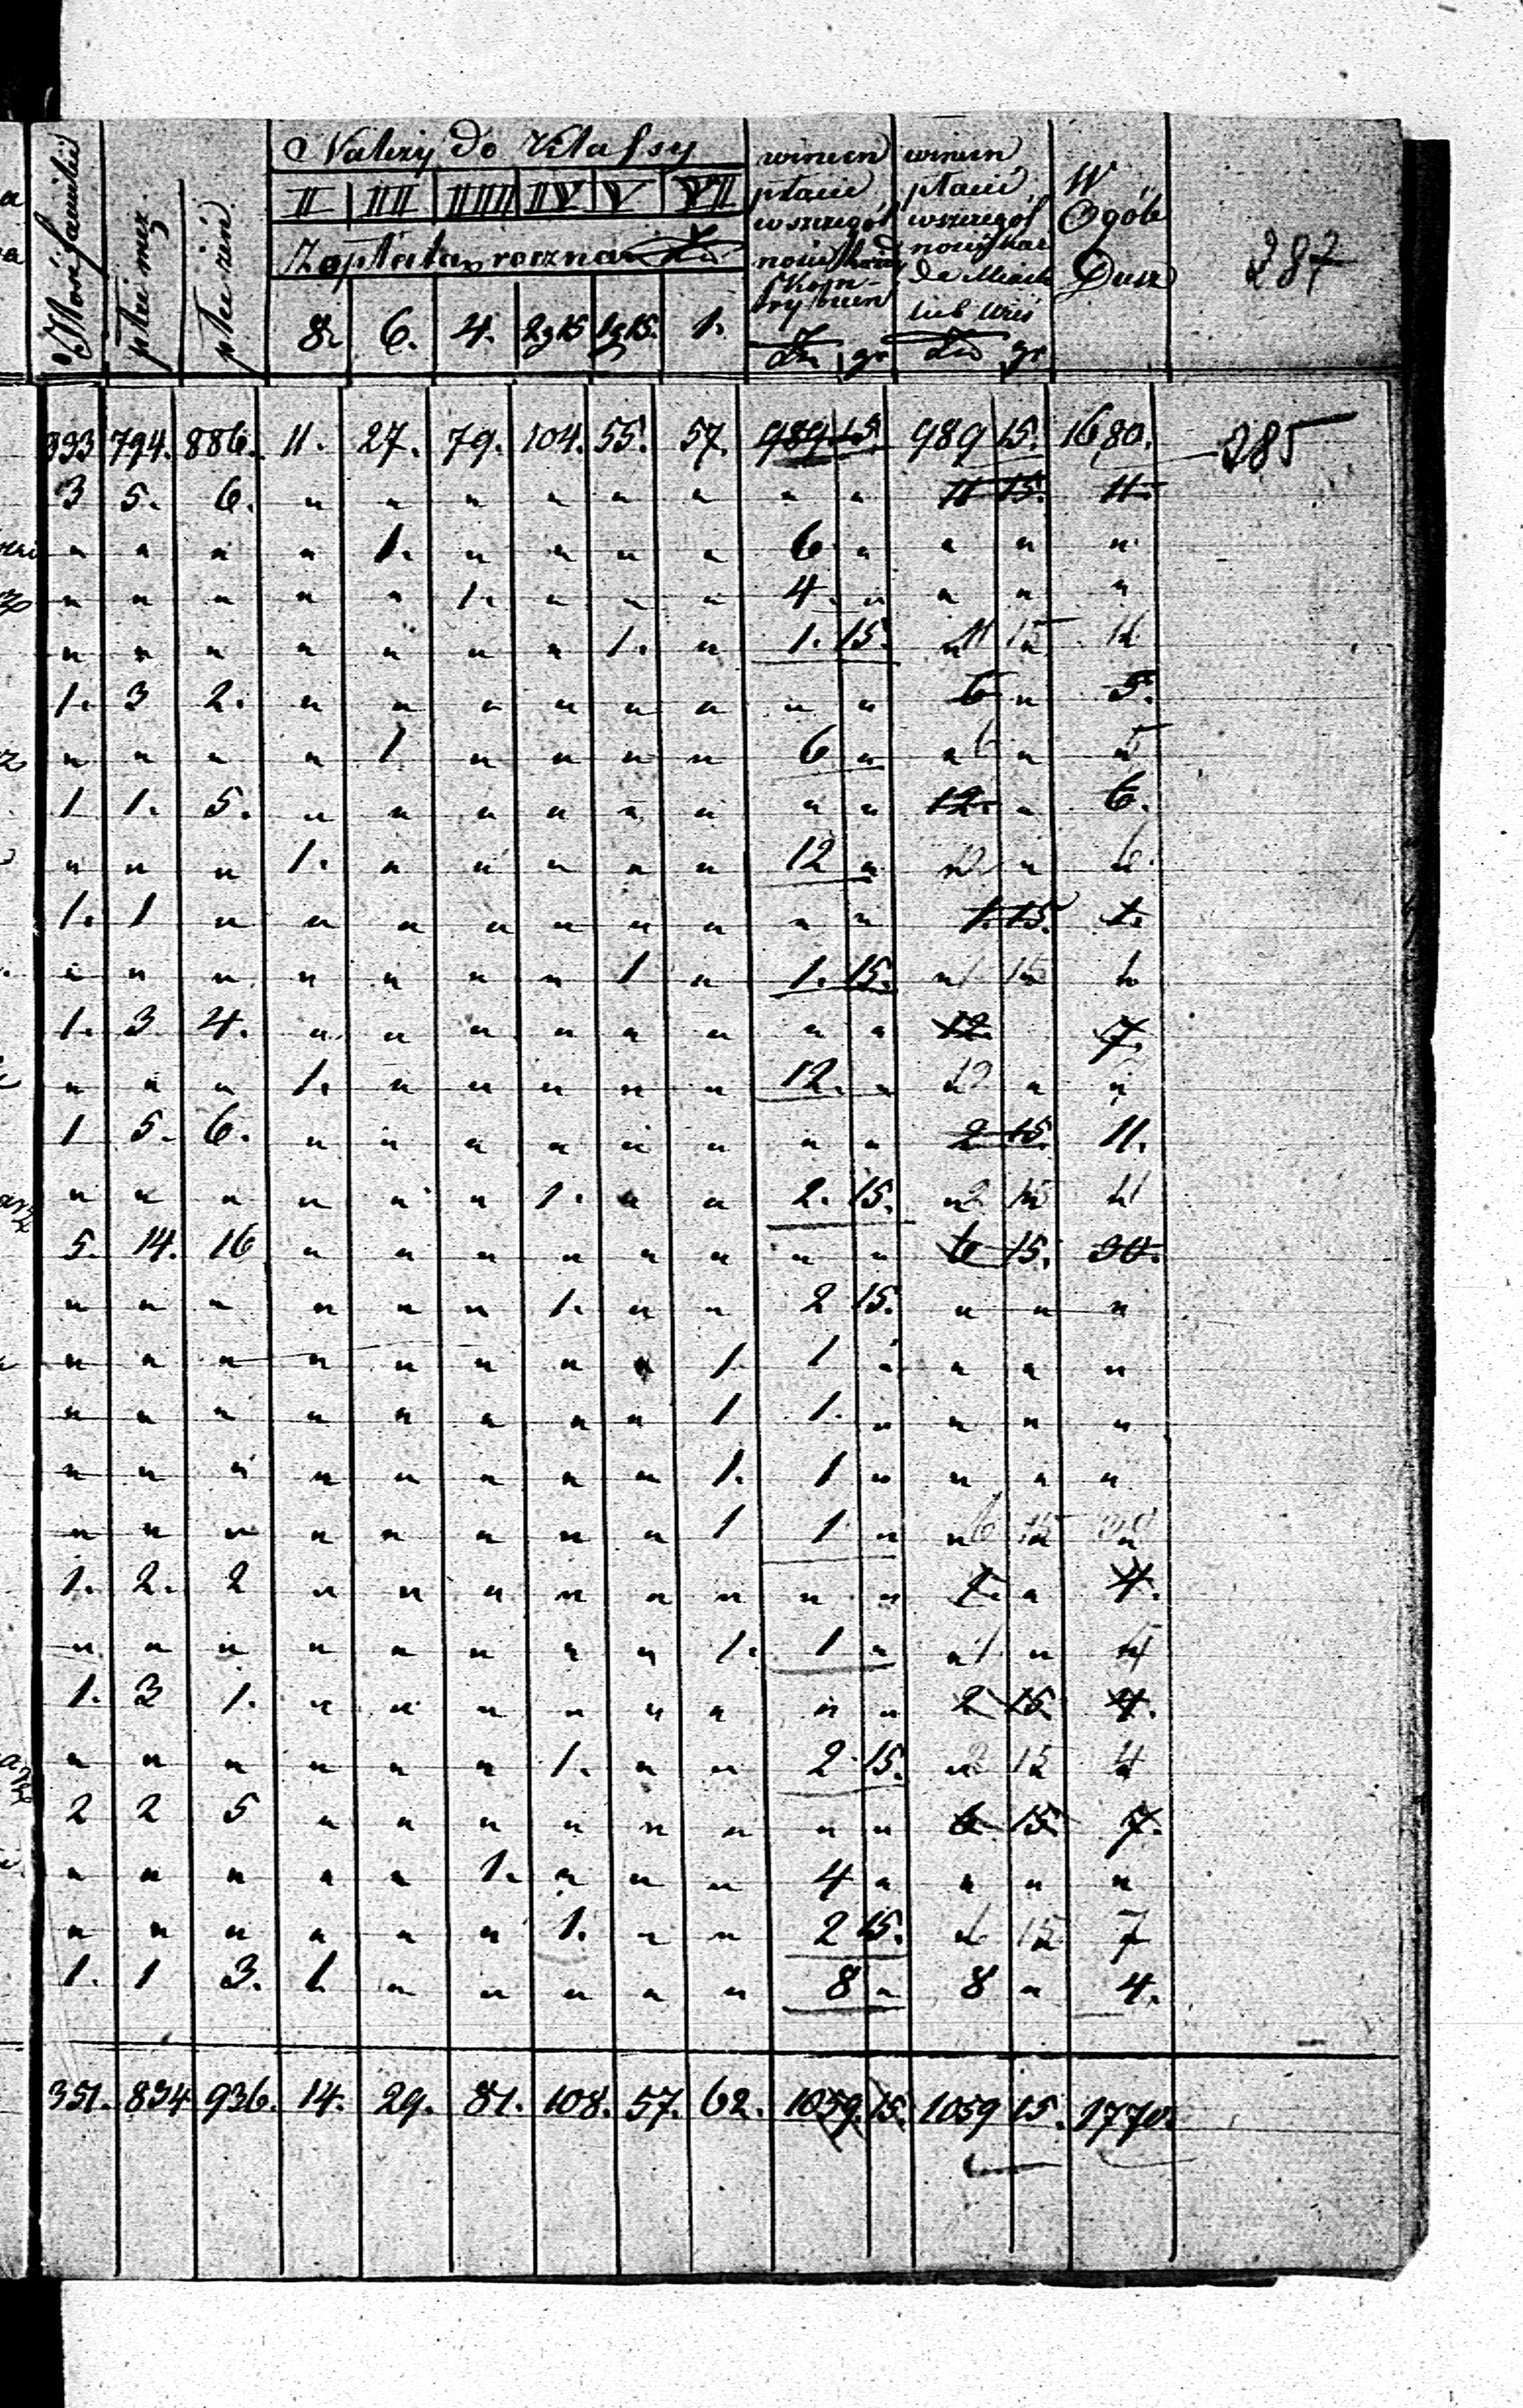 Należy do Klassy
II III IIII IV V VI
Zapłata roczna
8. 6. 4. 2g15 1g15. 1.
Ilość familii
płci męz.
płci żeń.
winien płacić w szczegól
winien płacić w szczegól
zł gr
zł gr
W Ogóle Dusz
287
333 794. 886. 11. 27. 79. 104. 55. 57. 989 15 989 15. 1680. 285
3 5. 6. " " " " " " " " 11 15. 11.
" " " " 1. " " " " 6 " " " "
" " " " " 1. " " " 4. " " " "
" " " " " " " 1. " 1. 15. 11 15 11
1. 3 2. " " " " " " " " 6 " 5.
" " " " 1 " " " " 6 " 6 " 5
1 1. 5. " " " " " " " " 12. " 6.
" " " 1. " " " " " 12 " 12 " 6.
1. 1 " " " " " " " " " 1. 15. 1.
" " " " " " " 1 " 1. 15. 1 15 1
1. 3 4. " " " " " " " " 12. 7.
" " " 1. " " " " " 12. " 12 " "
1 5. 6. " " " " " " " " 2 15. 11.
" " " " " " 1. " " 2. 15. 2 15 11
5. 14. 16 " " " " " " " " 6 15. 30.
" " " " " " 1. " " 2 15. " " "
" " " " " " " " 1. 1 " " " "
" " " " " " " " 1 1. " " " "
" " " " " " " " 1. 1 " " " "
" " " " " " " " 1 1 " 6 15 30
1. 2. 2 " " " " " " " " 1. " 4.
" " " " " " " " 1. 1 " 1 " 4
1. 3 1. " " " " " " " " 2 15. 4.
" " " " " " 1. " " 2 15. 2 15 4
2 2 5 " " " " " " " " 6 15 7.
" " " " " 1. " " " 4 " " " "
" " " " " " 1. " " 2 15. 6 15 7
1. 1 3. 1. " " " " " 8 " 8 " 4.
351. 834 936. 14. 29. 81. 108. 57. 62. 1059. 15. 1059 15. 1770.